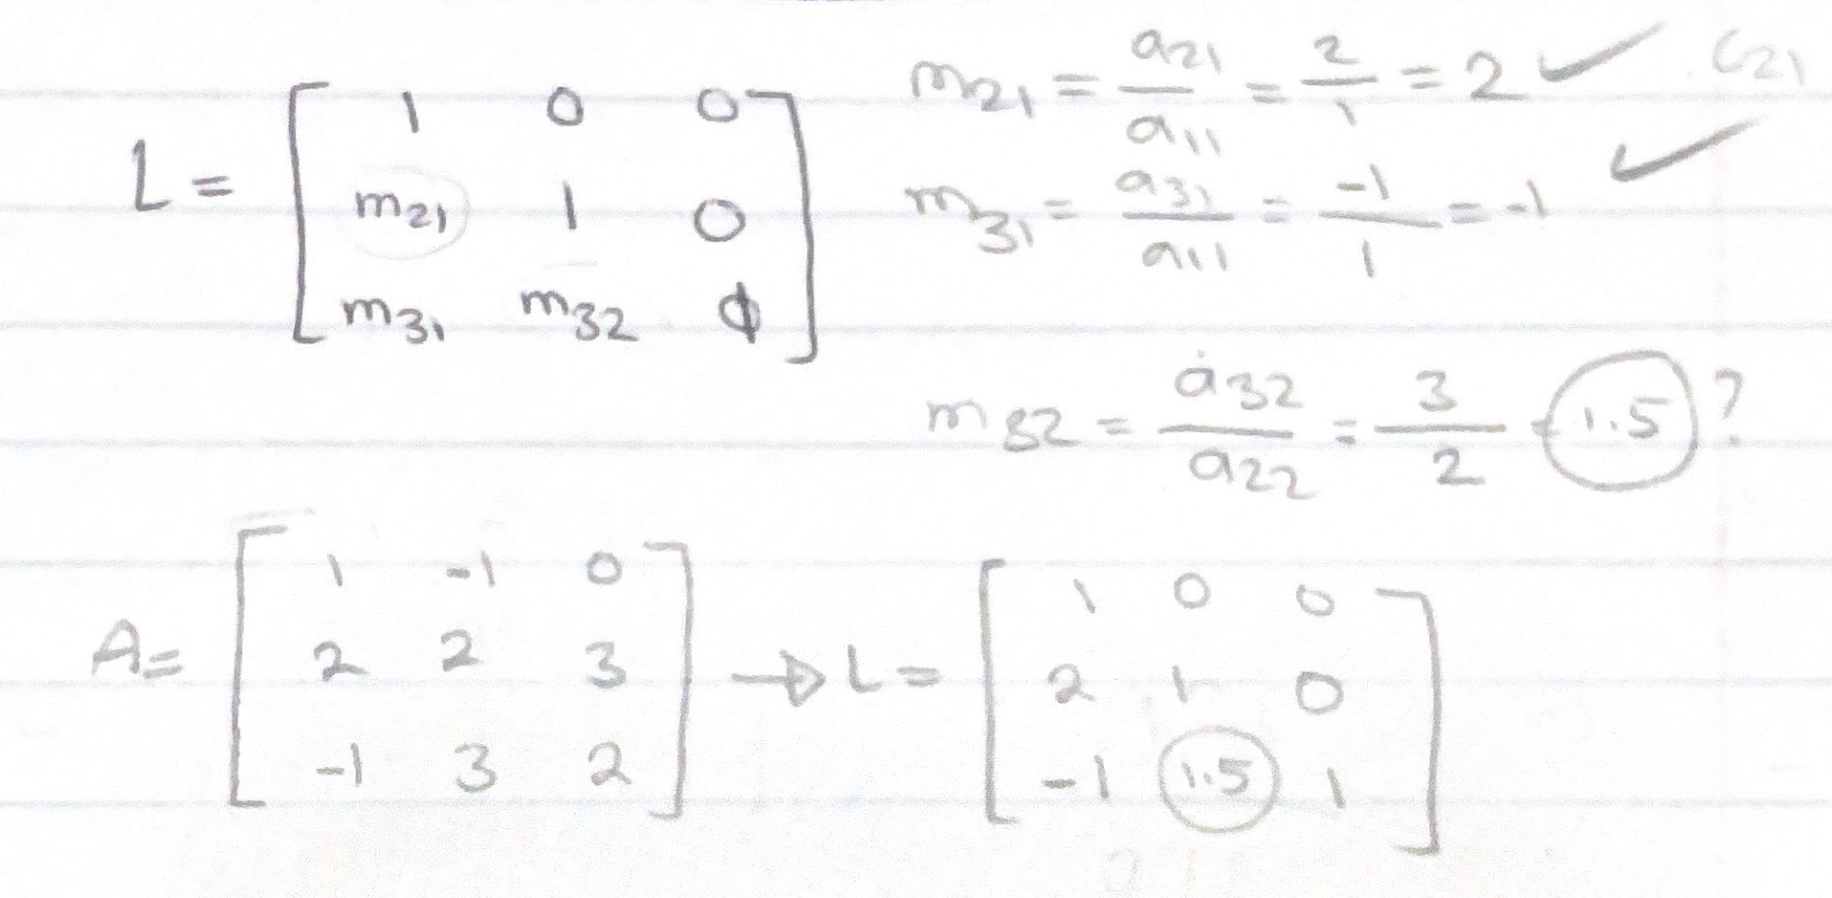 L = [ 1 0 0
m21 1 0
m31 m32 1 ]
m21 = a21 / a11 = 2 / 1 = 2 ✓ . C21
m31 = a31 / a11 = -1 / 1 = -1 ✓
m32 = a32 / a22 = 3 / 2 = 1.5 ?
A = [ 1 -1 0
2 2 3
-1 3 2 ]
→ L = [ 1 0 0
2 1 0
-1 1.5 1 ]